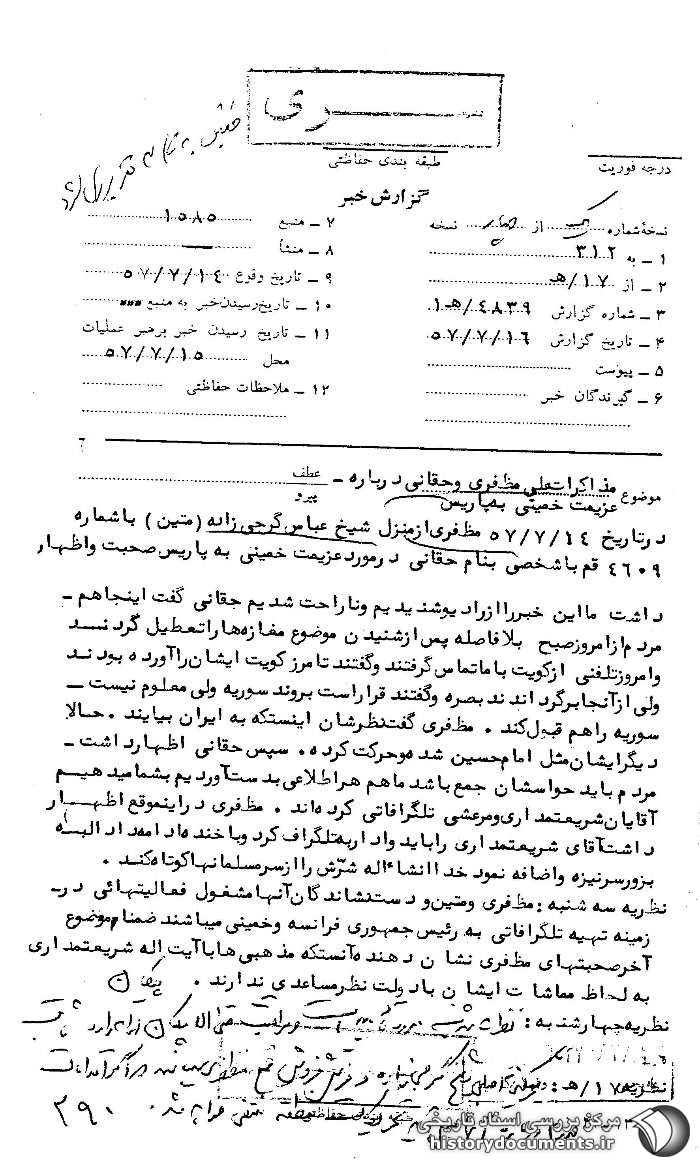 سری
طبقه بندی حفاظتی
درجه فوریت
گزارش خبر
نسخهٔ شماره از نسخه
۱ ـ به ۳۱۲
۲ ـ از ۱۷/هـ
۳ ـ شماره گزارش ۴۸۳۹/هـ۱
۴ ـ تاریخ گزارش ۵۷/۷/۱۶
۵ ـ پیوست
۶ ـ گیرندگان خبر
۷ ـ منبع ۱۵۸۵
۸ ـ منشأ
۹ ـ تاریخ وقوع ۵۷/۷/۱۴
۱۰ ـ تاریخ رسیدن خبر به منبع
۱۱ ـ تاریخ رسیدن خبر برهبر عملیات
محل ۵۷/۷/۱۵
۱۲ ـ ملاحظات حفاظتی
موضوع مذاکرات علی مظفری وحقانی درباره ـ
عزیمت خمینی به پاریس
عطف
پیرو
درتاریخ ۵۷/۷/۱۴ مظفری ازمنزل شیخ عباس گرجی زاده (متین) باشماره
۴۶۰۹ قم باشخصی بنام حقانی درموردعزیمت خمینی به پاریس صحبت واظهار
داشت ماین خبرراازرادیوشنیدیم وناراحت شدیم حقانی گفت اینجاهم ـ
مردم ازامروزصبح بلافاصله پس ازشنیدن موضوع مغازه هاراتعطیل کردند
وامروزتلفنی ازکویت باماتماس گرفتند وگفتند تامرزکویت ایشان راآورده بودند
ولی ازآنجابرگرداندند بصره وگفتند قراراست بروند سوریه ولی معلوم نیست ـ
سوریه راهم قبول کند . مظفری گفت نظرشان اینستکه به ایران بیایند . حالا
دیگرایشان مثل امام حسین شده وحرکت کرده. سپس حقانی اظهارداشت ـ
مردم باید حواسشان جمع باشد ماهم هراطلاعی بدست آوردیم بشمامیدهیم
آقایان شریعتمداری ومرعشی تلگرافاتی کرده اند . مظفری دراینموقع اظهار
داشت آقای شریعتمداری راباید واداربه تلگراف کرد وباخنده ادامه داد البته
بزورسرنیزه واضافه نمود خداانشاءاله شرّش راازسرمسلمانهاکوتاه کند .
نظریه سه شنبه : مظفری ومتین ودست نشاندگان آنهامشغول فعالیتهائی درـ
زمینه تهیه تلگرافاتی به رئیس جمهوری فرانسه وخمینی میباشند ضمنا موضوع
آخرصحبتهای مظفری نشان دهنده آنستکه مذهبی هاباآیت اله شریعتمداری
به لحاظ معاشات ایشان بادولت نظرمساعدی ندارند .
نظریه چهارشنبه :
نظریه ۱۷/هـ :
۳۹۰
مرکز بررسی اسناد تاریخی
historydocuments.ir